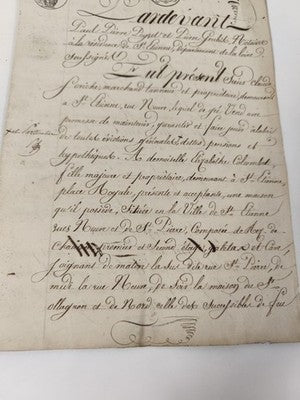 Pardevant
Paul Pierre Peyret et Pierre Grubis Notaires
à la résidence de St. Etienne Département de la Loire
Soussignés
Fut présent Sieur Claude
marchand tanneur et propriétaire demeurant
à St. Etienne, rue Neuve, lequel de gré Vend avec
promesse de maintenir, garantir et faire jouir
de toutes évictions généralement dettes, pensions et
hypothèques. A demoiselle Elizabeth Colombet
fille majeure et propriétaire, demeurant à St. Etienne
place Royale, présente et acceptante, une maison
qu'il possède, Située en la Ville de St. Etienne
rues Neuve et de St. Pierre, Composée de Rez de
Chaussée premier et Second étages, galetas et Cave,
joignant de matin la dite rue St. Pierre, de
midi la rue Neuve, de Soir la maison du Sr.
Ollagnon et de Nord celle des Successibles de feu